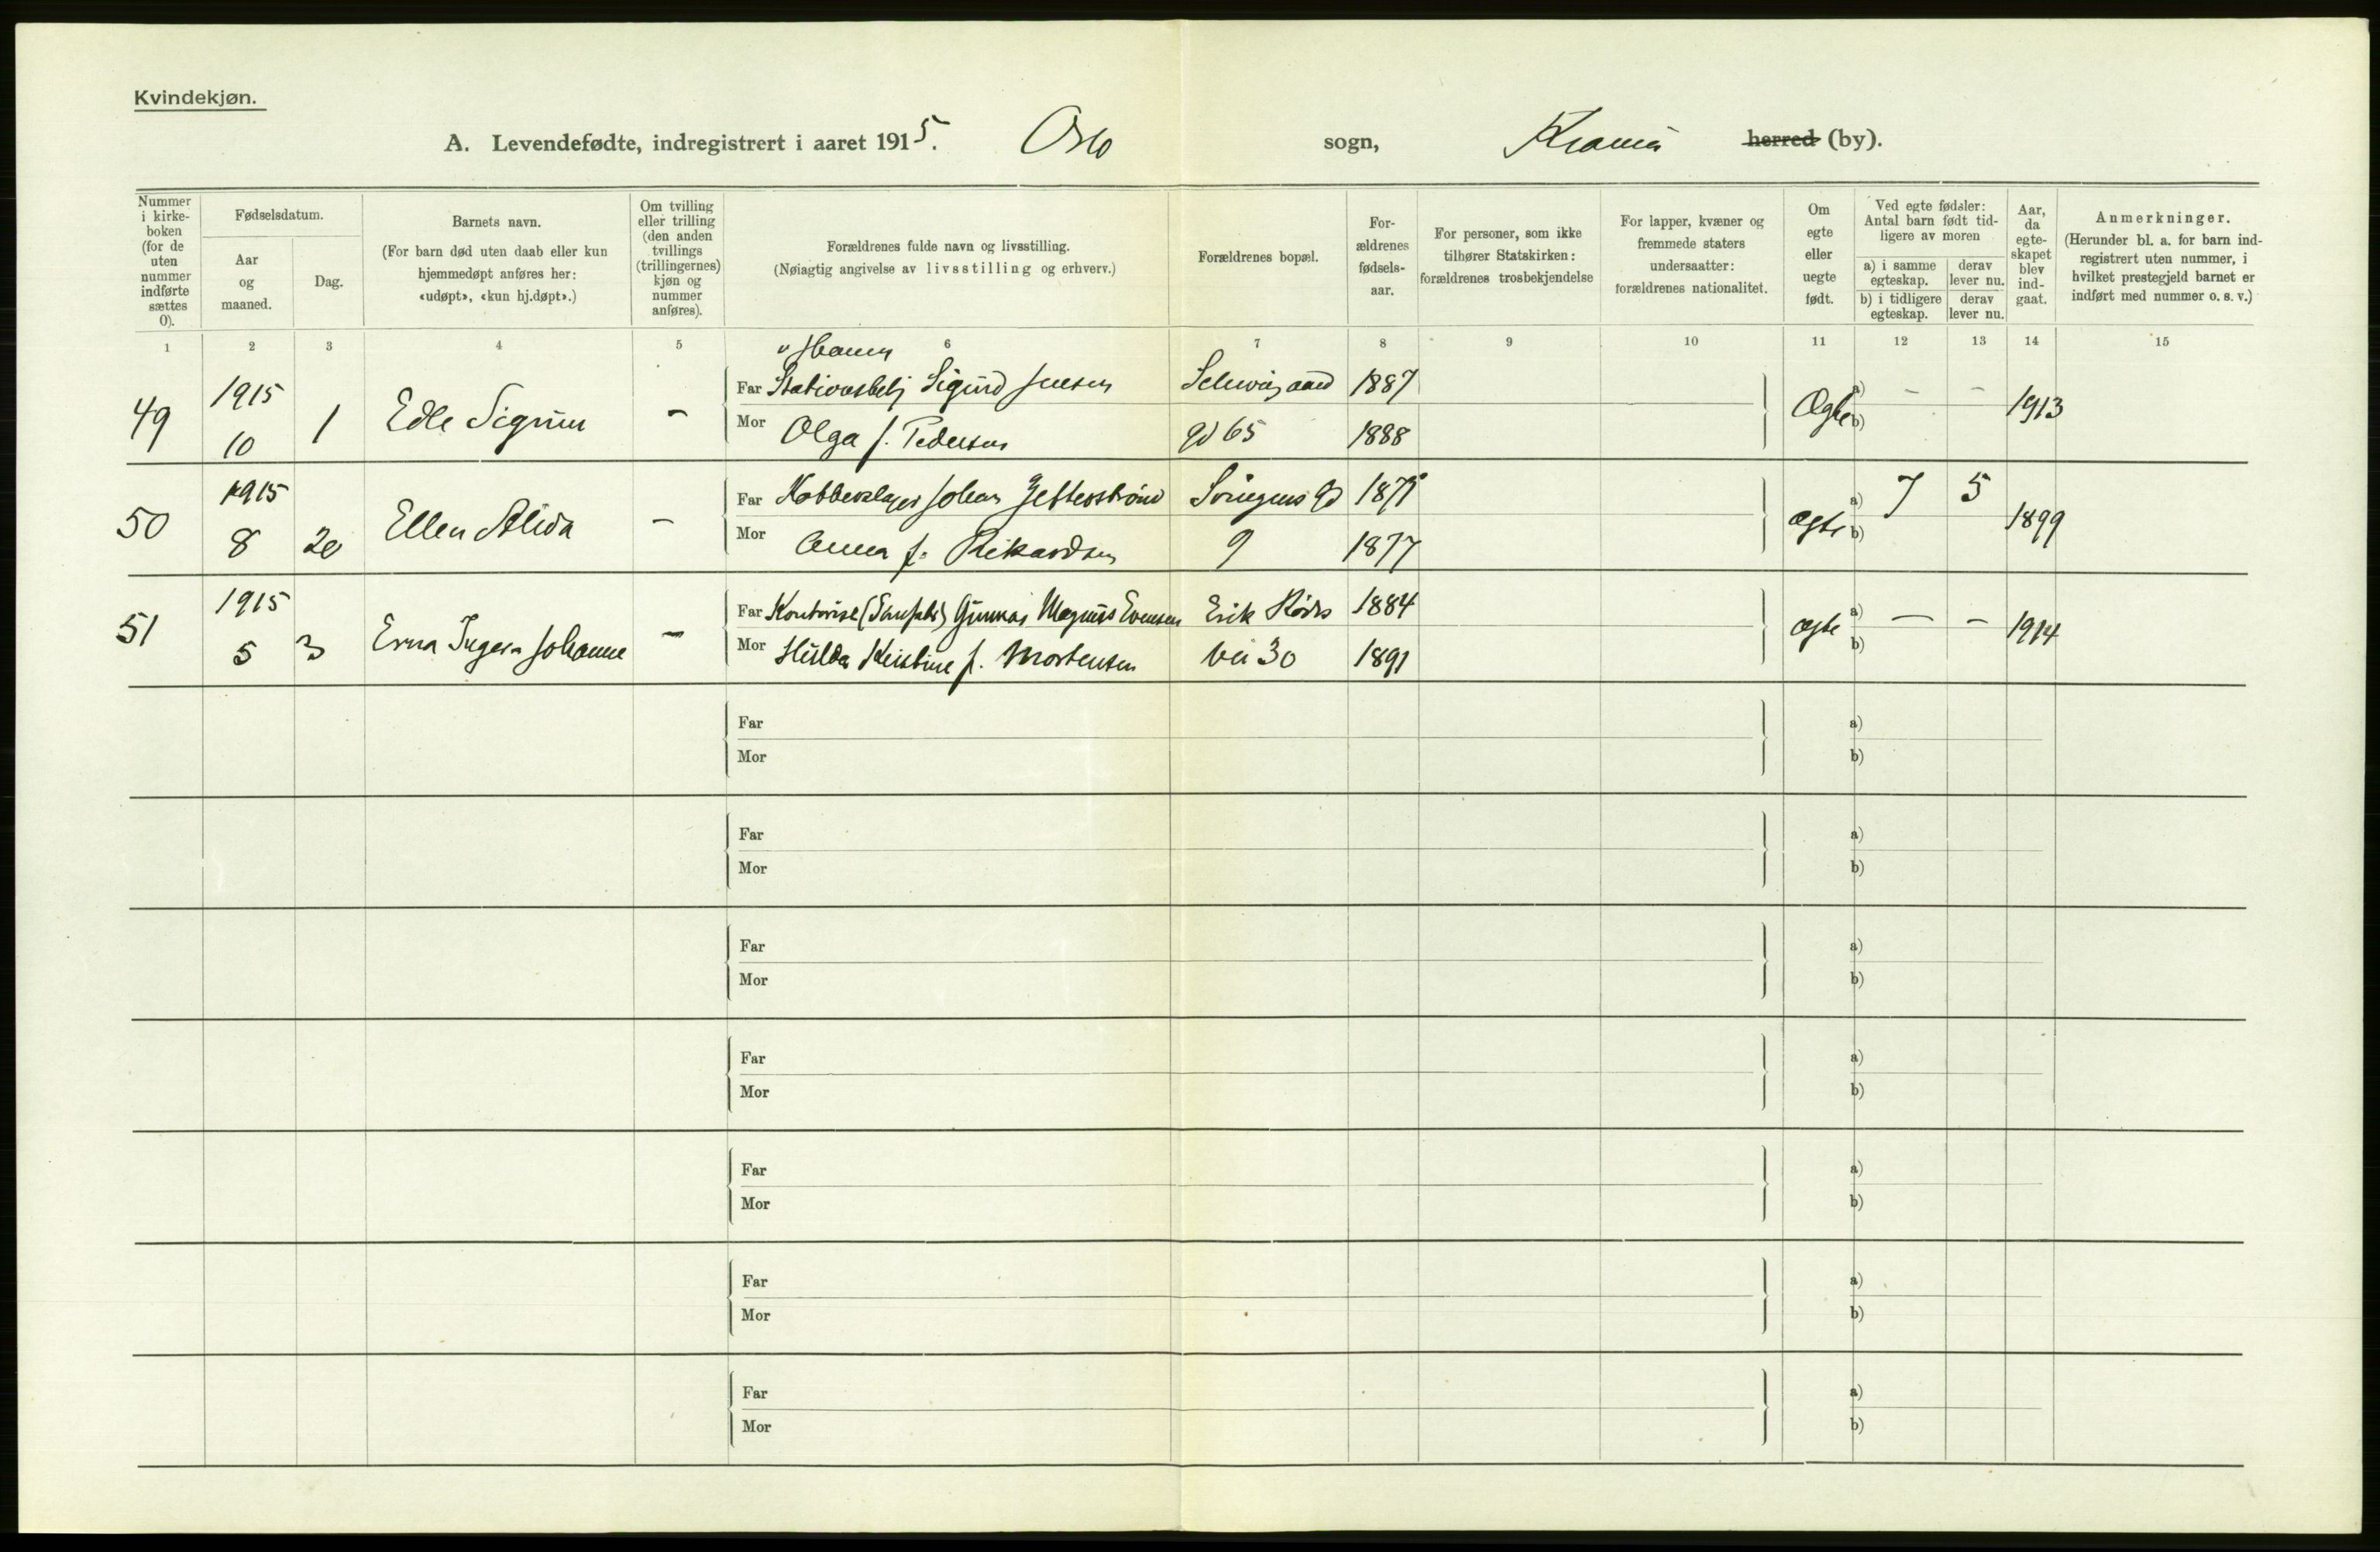 Kvindekjøn.
A. Levendefødte, indregistrert i aaret 1915. Oslo sogn, Krania herred (by).
Nummer i kirkeboken (for de uten nummer indførte sættes 0).
Fødselsdatum.
Aar og maaned.
Dag.
Barnets navn.
(For barn død uten daab eller kun hjemmedøpt anføres her: «udøpt», «kun hj.døpt».)
Om tvilling eller trilling (den anden tvillings (trillingernes) kjøn og nummer anføres).
Forældrenes fulde navn og livsstilling.
(Nøiagtig angivelse av livsstilling og erhverv.)
Forældrenes bopæl.
For-ældrenes fødsels-aar.
For personer, som ikke tilhører Statskirken: forældrenes trosbekjendelse
For lapper, kvæner og fremmede staters undersaatter: forældrenes nationalitet.
Om egte eller uegte født.
Ved egte fødsler: Antal barn født tid-ligere av moren
a) i samme egteskap.
derav lever nu.
b) i tidligere egteskap.
derav lever nu.
Aar, da egte-skapet blev ind-gaat.
Anmerkninger.
(Herunder bl. a. for barn ind-registrert uten nummer, i hvilket prestegjeld barnet er indført med nummer o. s. v.)
1 2 3 4 5 6 7 8 9 10 11 12 13 14 15
49 1915 10 1 Edle Sigrun -
Far Stationsbetj Sigurd Jensen Schweigaard 1887
Mor Olga f. Pedersen gd 65 1888
Ægte a) - - b) 1913
50 1915 8 20 Ellen Alida -
Far Kobberslager Johan Zetterströnd gd 187
Mor Anna f. Rikardsen 9 1877
ægte a) 7 5 b) 1899
51 1915 5 3 Erna Ingera Johanne -
Far Kontorist Gunnar Magnus Evensen Erik 1884
Mor Hulda Kristine f. Mortensen vei 30 1891
ægte a) - - b) 1914
Far a)
Mor b)
Far a)
Mor b)
Far a)
Mor b)
Far a)
Mor b)
Far a)
Mor b)
Far a)
Mor b)
Far a)
Mor b)